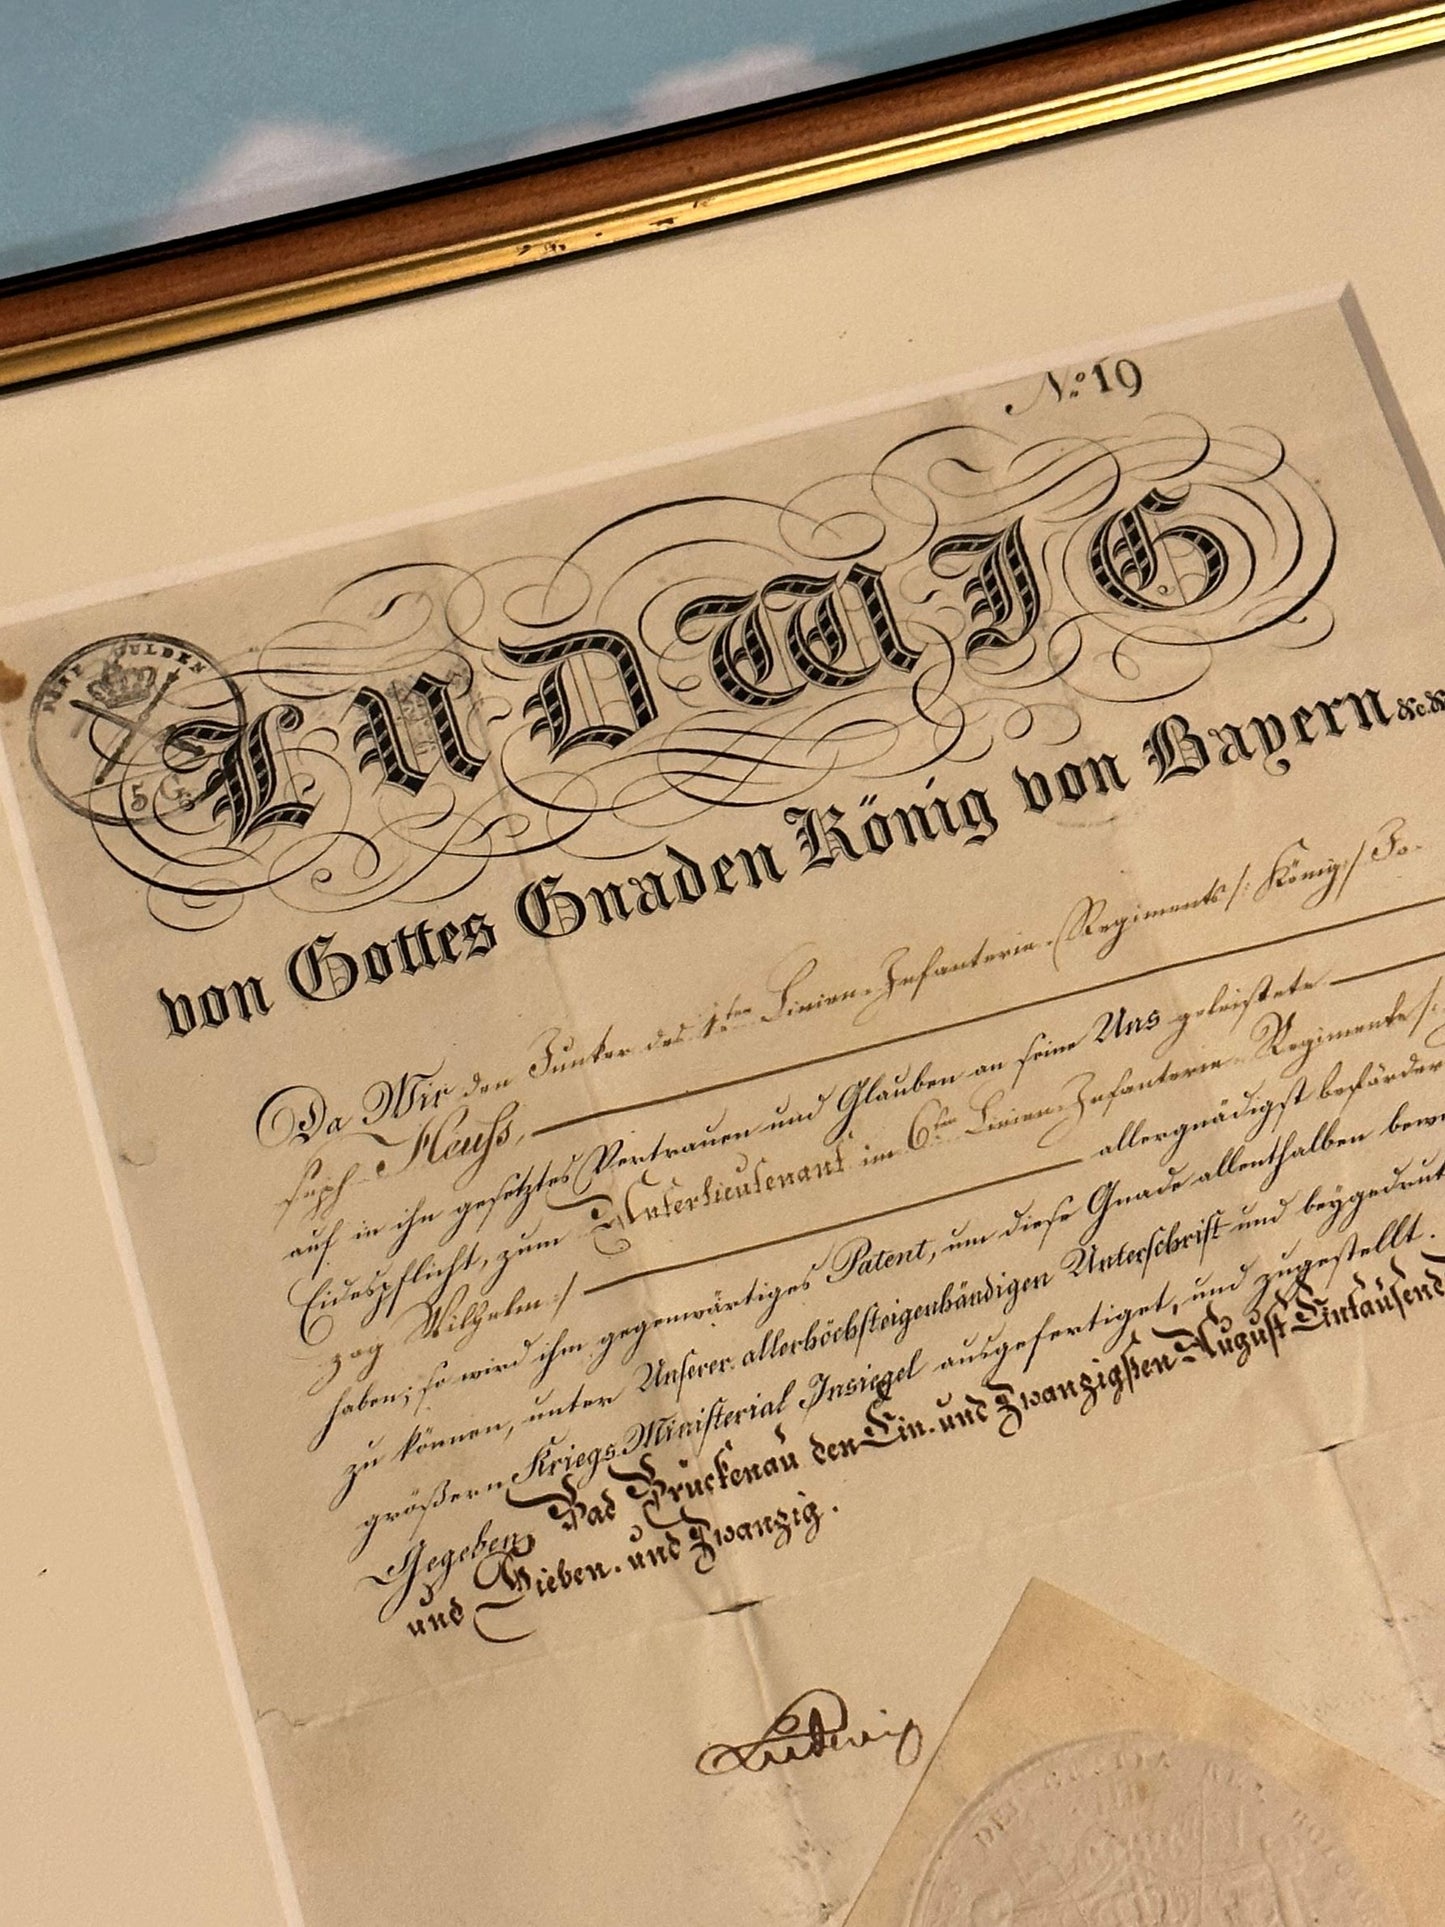 No 19
FÜNF GULDEN
5 G
LUDWIG
von Gottes Gnaden König von Bayern &c. &
Da Wir den Junker des 1ten Linien-Infanterie-Regiments /: König :/ Jo-
seph Heuss,
auf in ihn gesetztes Vertrauen und Glauben an seine Uns geleistete
Eidespflicht, zum Unterlieutenant im 6ten Linien-Infanterie-Regimente /:
zog Wilhelm :/ allergnädigst beförder
haben; so wird ihm gegenwärtiges Patent, um diese Gnade allenthalben bewe
zu können, unter Unserer allerhöchsteigenhändigen Unterschrift und beygedruk
größern Kriegs-Ministerial Insiegel ausgefertiget, und zugestellt.
Gegeben Bad Brückenau den Ein- und Zwanzigsten August Eintausend
und Sieben- und Zwanzig.
Ludwig